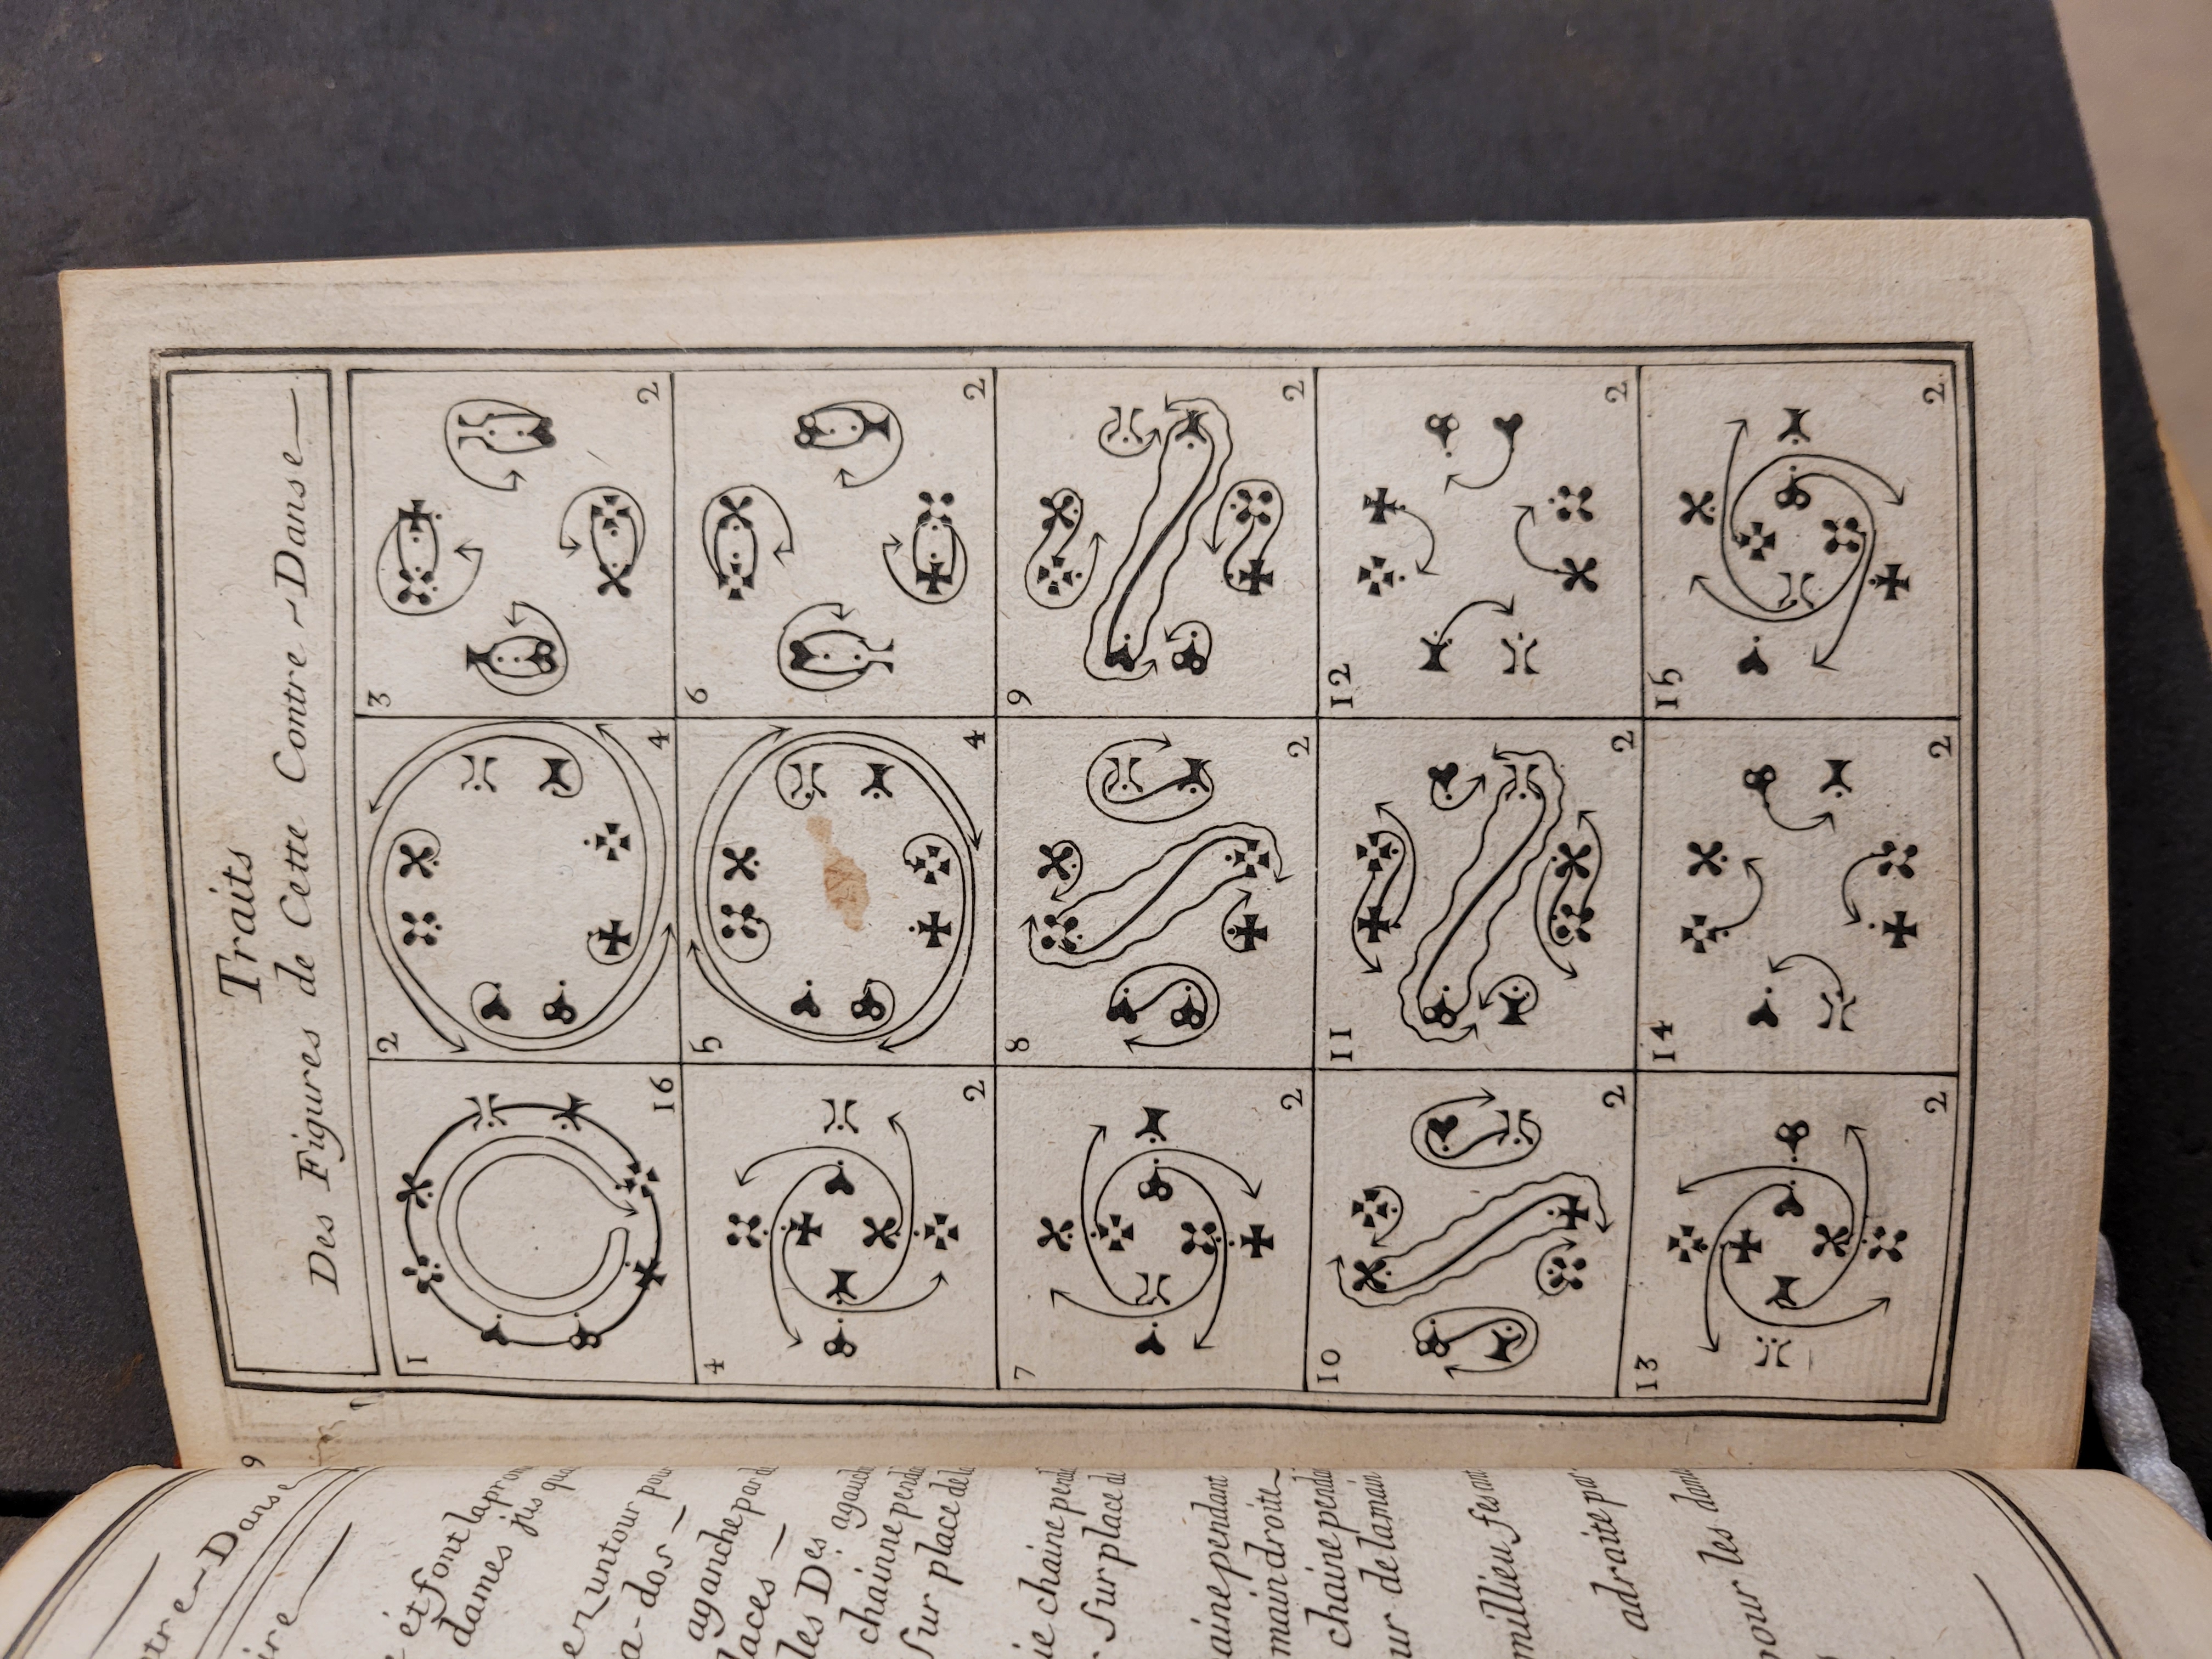 Traits
Des Figures de Cette Contre-Danse
1
16
2
4
3
2
4
2
5
4
6
2
7
2
8
2
9
2
10
2
11
2
12
2
13
2
14
2
15
2
9
Danse
et font la
dames jus
un tour
a-dos
a ganche par
places
les Ds a gauch
chainne pend
Sur place de
chaine pend
Sur place d
aine pendant
main droite
chaine penda
ur de la main
millieu fesan
adraite par
pour les dam